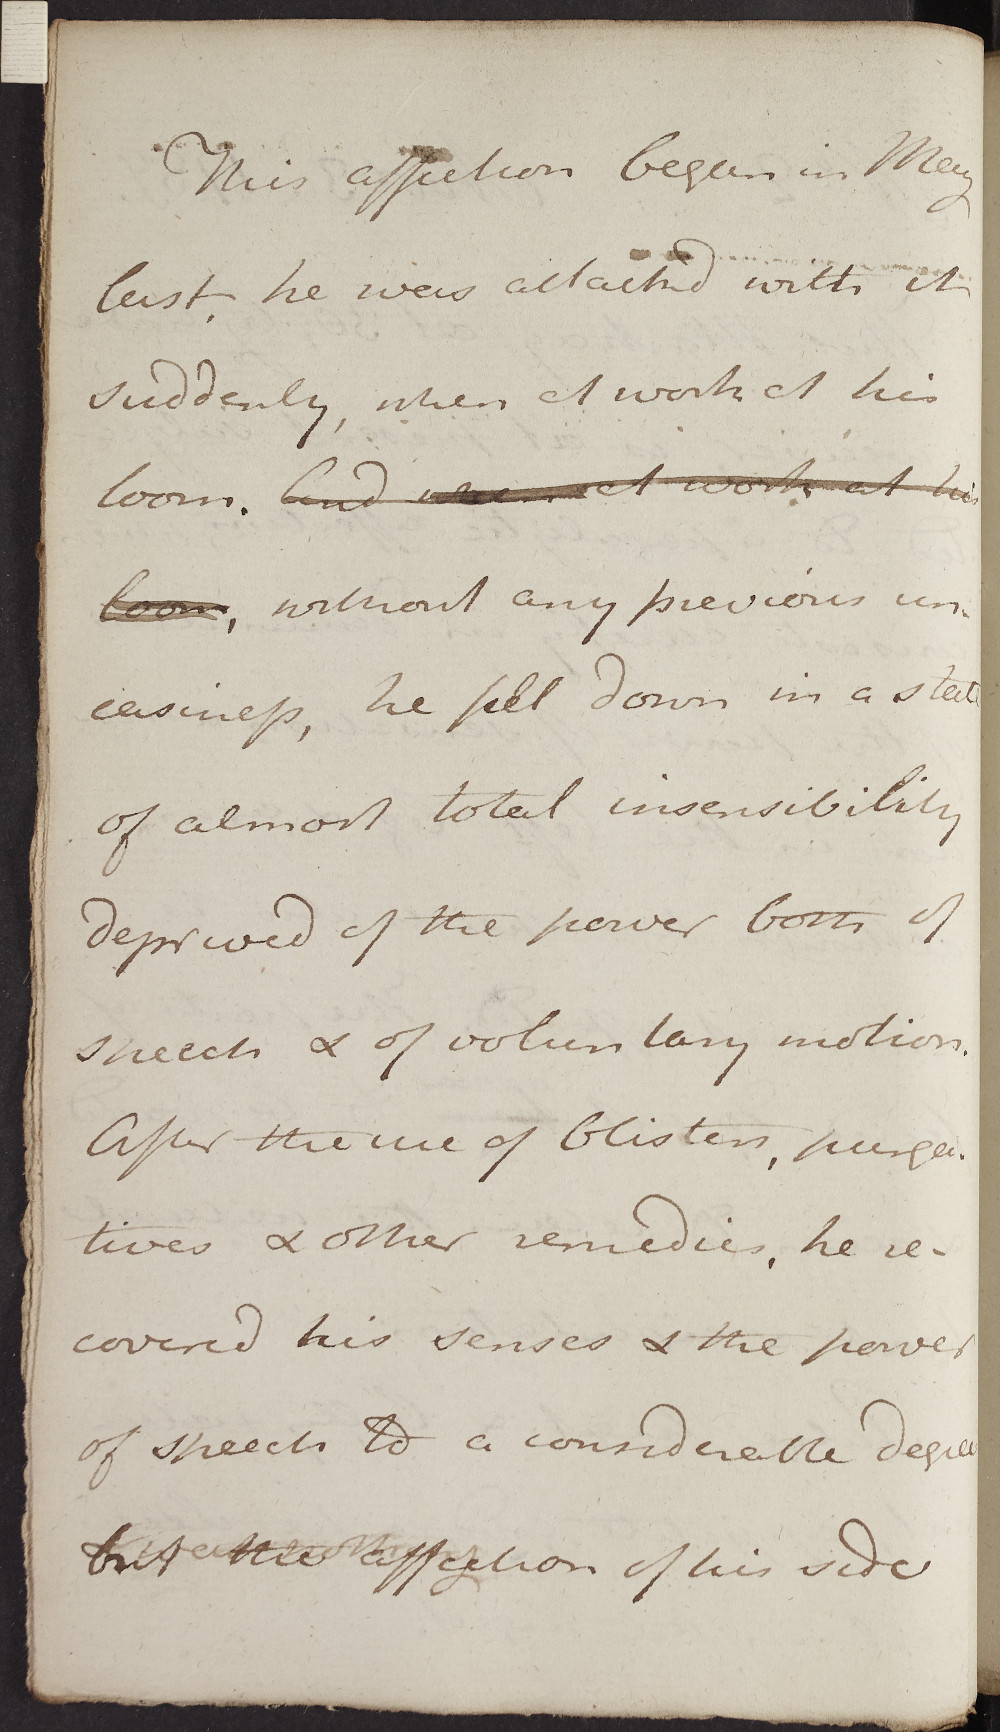 This affection began in May
last, he was attacked with it
suddenly, when at work at his
loom. And when at work at his
loom, without any previous un-
easiness, he fell down in a state
of almost total insensibility
deprived of the power both of
speech & of voluntary motion.
After the use of blisters, purga-
tives & other remedies, he re-
covered his senses & the power
of speech to a considerable degree
but the affection of his side